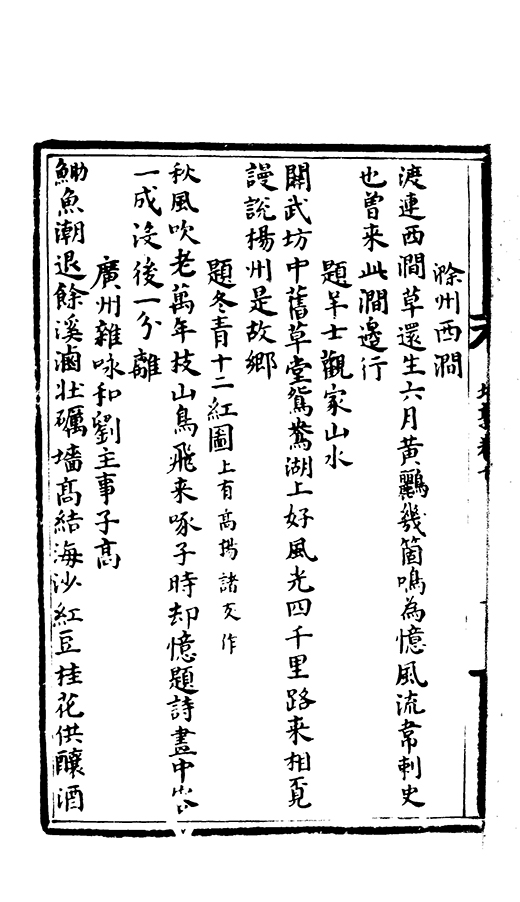 滁州西澗
渡連西澗草還生六月黃鸝幾箇鳴為憶風流韋刺史
也曾來此澗邊行
題羊士觀家山水
開武坊中舊草堂鴛鴦湖上好風光四千里路来相覓
謾說楊州是故鄉
題冬青十二紅圖上有高楊諸友作
秋風吹老萬年枝山鳥飛来啄子時却憶題詩畫中
一成沒後一分離
廣州雜咏和劉主事子高
鰤魚潮退餘溪滷壯礪墻髙結海沙紅豆桂花供釀酒